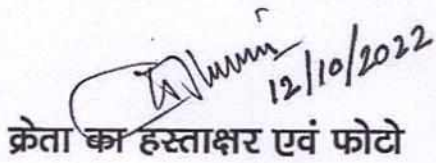 12/10/2022
क्रेता का हस्ताक्षर एवं फोटो